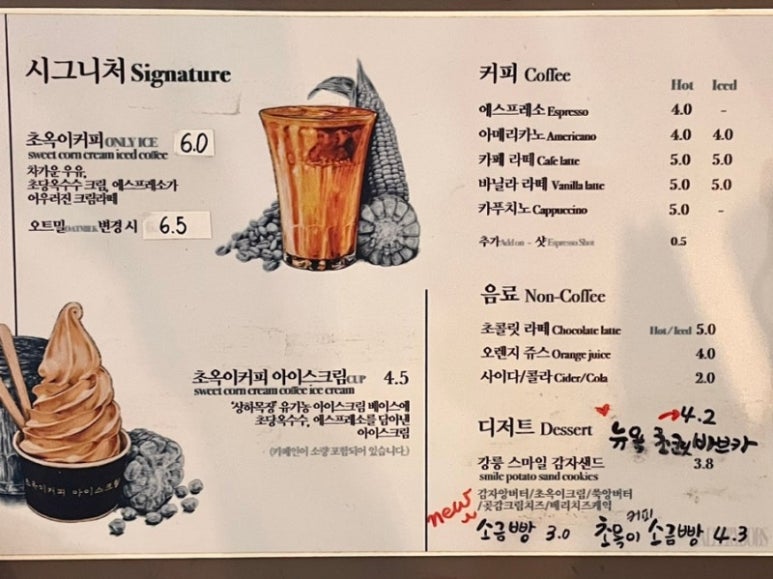 시그니처 Signature
초옥이커피 ONLY ICE 6.0
sweet corn cream iced coffee
차가운 우유,
초당옥수수 크림, 에스프레소가
어우러진 크림라떼
오트밀 OATMILK 변경 시 6.5
초옥이커피 아이스크림 CUP 4.5
sweet corn cream coffee ice cream
'상하목장' 유기농 아이스크림 베이스에
초당옥수수, 에스프레소를 담아낸
아이스크림
(카페인이 소량 포함되어 있습니다.)
초옥이커피 아이스크림
커피 Coffee
Hot Iced
에스프레소 Espresso 4.0 -
아메리카노 Americano 4.0 4.0
카페 라떼 Cafe latte 5.0 5.0
바닐라 라떼 Vanilla latte 5.0 5.0
카푸치노 Cappuccino 5.0 -
추가 Add on - 샷 Espresso Shot 0.5
음료 Non-Coffee
초콜릿 라떼 Chocolate latte Hot/Iced 5.0
오렌지 쥬스 Orange juice 4.0
사이다/콜라 Cider/Cola 2.0
디저트 Dessert
♥ 뉴욕 초코 바브카 → 4.2
강릉 스마일 감자샌드 3.8
smile potato sand cookies
감자앙버터/초옥이크림/쑥앙버터
/곶감크림치즈/베리치즈케익
new 소금빵 3.0
초옥이 커피 소금빵 4.3